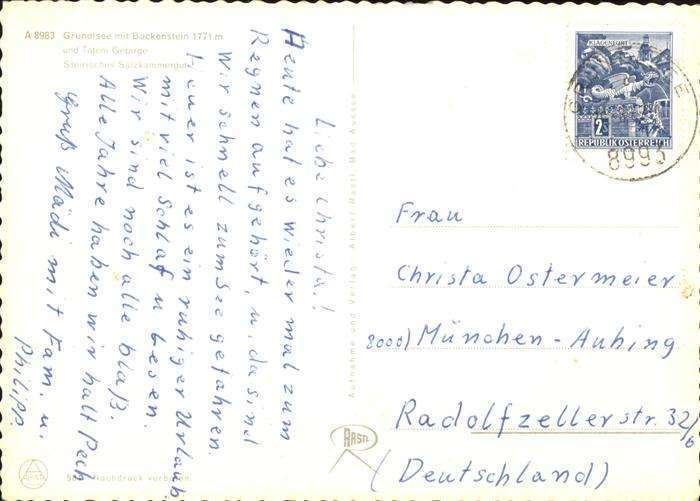 A 8983 Grundlsee mit Backenstein 1771 m
und Totem Gebirge
Steirisches Salzkammergut
Liebe Christa!
Heute hat es wieder mal zum
Regnen aufgehört, u. da sind
wir schnell zum See gefahren.
Heuer ist es ein ruhiger Urlaub
mit viel Schlaf u lesen.
Wir sind noch alle blaß.
Alle Jahre haben wir halt Pech
Gruß Mädi mit Fam. u.
Philipp.
Nachdruck verboten
Aufnahme und Verlag Albert Rastl, Bad Aussee
RASTL
KLAGENFURT
2S
REPUBLIK ÖSTERREICH
8993
Frau
Christa Ostermeier
8000) München-Aubing
Radolfzellerstr. 32/6
(Deutschland)